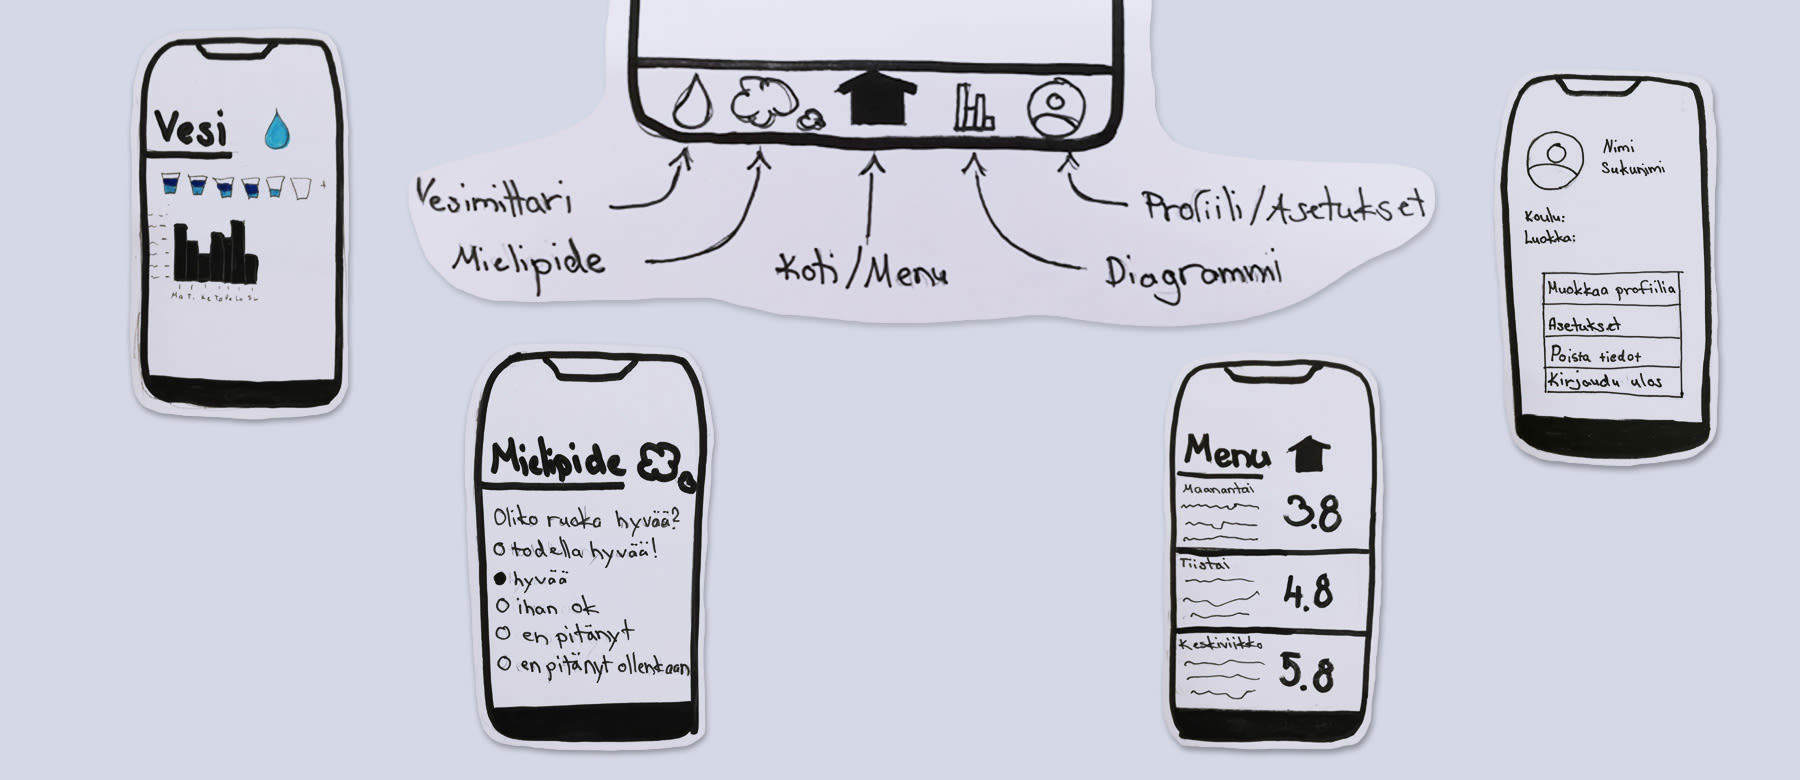 Vesi
+
Ma Ti Ke To Pe La Su
Vesimittari
Mielipide
Koti/Menu
Diagrammi
Profiili/Asetukset
Nimi
Sukunimi
Koulu:
Luokka:
Muokkaa profiilia
Asetukset
Poista tiedot
Kirjaudu ulos
Mielipide
Oliko ruoka hyvää?
todella hyvää!
hyvää
ihan ok
en pitänyt
en pitänyt ollenkaan
Menu
Maanantai
3.8
Tiistai
4.8
Keskiviikko
5.8